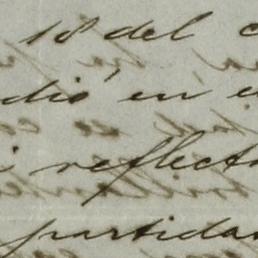 18 del
dió en
reflect
partida